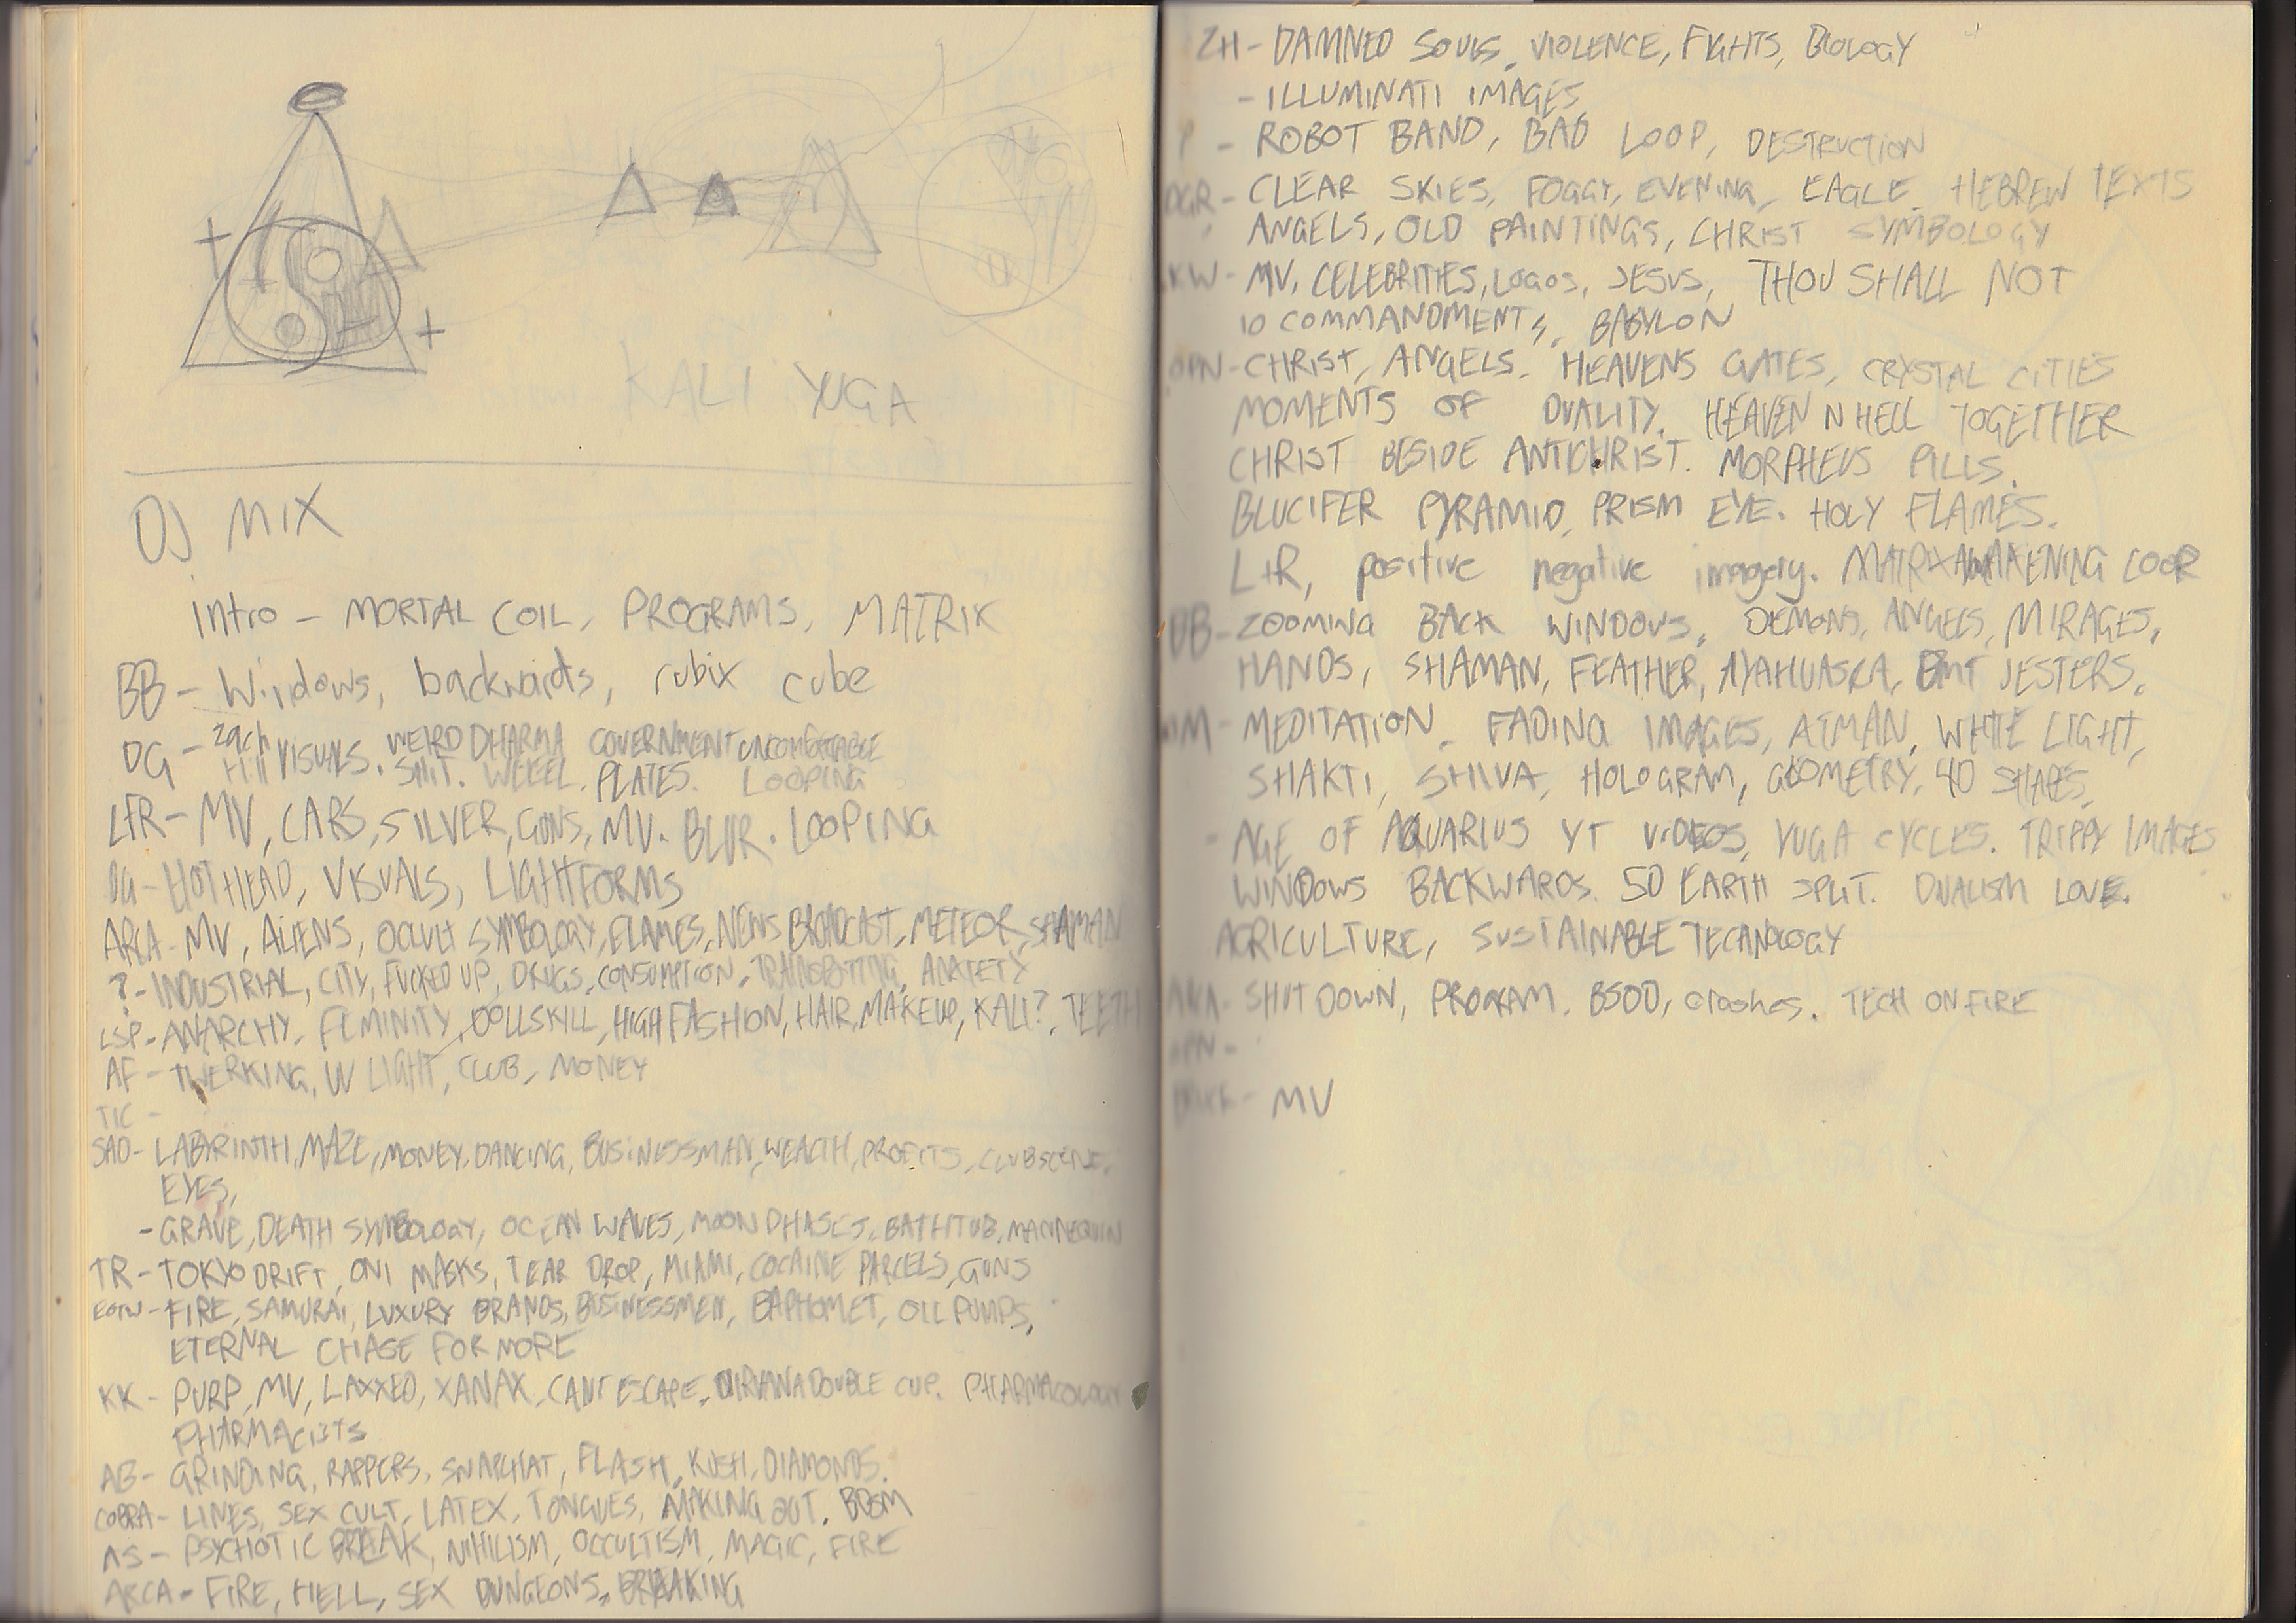 KALI YUGA
DJ MIX
intro - MORTAL COIL, PROGRAMS, MATRIX
BB - Windows, backwards, rubix cube
DG - zach hill VISUALS. WEIRD DHARMA GOVERNMENT UNCOMFORTABLE
SHIT. WHEEL. PLATES. LOOPING
LFR - MV, CARS, SILVER, GUNS, MV. BLUR. LOOPING
DG - HOTHEAD, VISUALS, LIGHTFORMS
ARCA - MV, ALIENS, OCCULT SYMBOLOGY, FLAMES, NEWS BROADCAST, METEOR, SHAMAN
? - INDUSTRIAL, CITY, FUCKED UP, DRUGS, CONSUMPTION, TRAINSPOTTING, ANXIETY
LSP - ANARCHY, FEMINITY, DOLLSKILL, HIGH FASHION, HAIR, MAKEUP, KALI?, TEETH
AF - TWERKING, UV LIGHT, CLUB, MONEY
TIC -
SAD - LABYRINTH, MAZE, MONEY, DANCING, BUSINESSMAN, WEALTH, PROFITS, CLUB SCENE,
EYES,
- GRAVE, DEATH SYMBOLOGY, OCEAN WAVES, MOON PHASES, BATHTUB, MANNEQUIN
TR - TOKYO DRIFT, ONI MASKS, TEAR DROP, MIAMI, COCAINE PARCELS, GUNS
EOTW - FIRE, SAMURAI, LUXURY BRANDS, BUSINESSMEN, BAPHOMET, OIL PUMPS,
ETERNAL CHASE FOR MORE
KK - PURP, MV, LAXXED, XANAX, CANT ESCAPE, NIRVANA DOUBLE CUP. PHARMACOLOGY
PHARMACISTS
AB - GRINDING, RAPPERS, SNAPCHAT, FLASH, KUSH, DIAMONDS.
COBRA - LINES, SEX CULT, LATEX, TONGUES, MAKING OUT, BDSM
AS - PSYCHOTIC BREAK, NIHILISM, OCCULTISM, MAGIC, FIRE
ARCA - FIRE, HELL, SEX DUNGEONS, BREAKING
ZH - DAMNED SOULS, VIOLENCE, FIGHTS, BIOLOGY
- ILLUMINATI IMAGES
P - ROBOT BAND, BAD LOOP, DESTRUCTION
DGR - CLEAR SKIES, FOGGY, EVENING, EAGLE, HEBREW TEXTS
ANGELS, OLD PAINTINGS, CHRIST SYMBOLOGY
KW - MV, CELEBRITIES, LOGOS, JESUS, THOU SHALL NOT
10 COMMANDMENTS, BABYLON
OPN - CHRIST, ANGELS. HEAVENS GATES, CRYSTAL CITIES
MOMENTS OF DUALITY. HEAVEN N HELL TOGETHER
CHRIST BESIDE ANTICHRIST. MORPHEUS PILLS.
BLUCIFER PYRAMID, PRISM EYE. HOLY FLAMES.
L+R, positive negative imagery. MATRIX AWAKENING LOOP
BB - ZOOMING BACK WINDOWS, DEMONS, ANGELS, MIRAGES,
HANDS, SHAMAN, FEATHER, AYAHUASCA, DMT JESTERS.
MEDITATION. FADING IMAGES, ATMAN, WHITE LIGHT,
SHAKTI, SHIVA, HOLOGRAM, GEOMETRY, 4D SHAPES,
- AGE OF AQUARIUS YT VIDEOS, YUGA CYCLES. TRIPPY IMAGES
WINDOWS BACKWARDS. 5D EARTH SPLIT. DUALISM LOVE.
AGRICULTURE, SUSTAINABLE TECHNOLOGY
SHUT DOWN, PROGRAM. BSOD, crashes. TECH ON FIRE
OPN -
MV